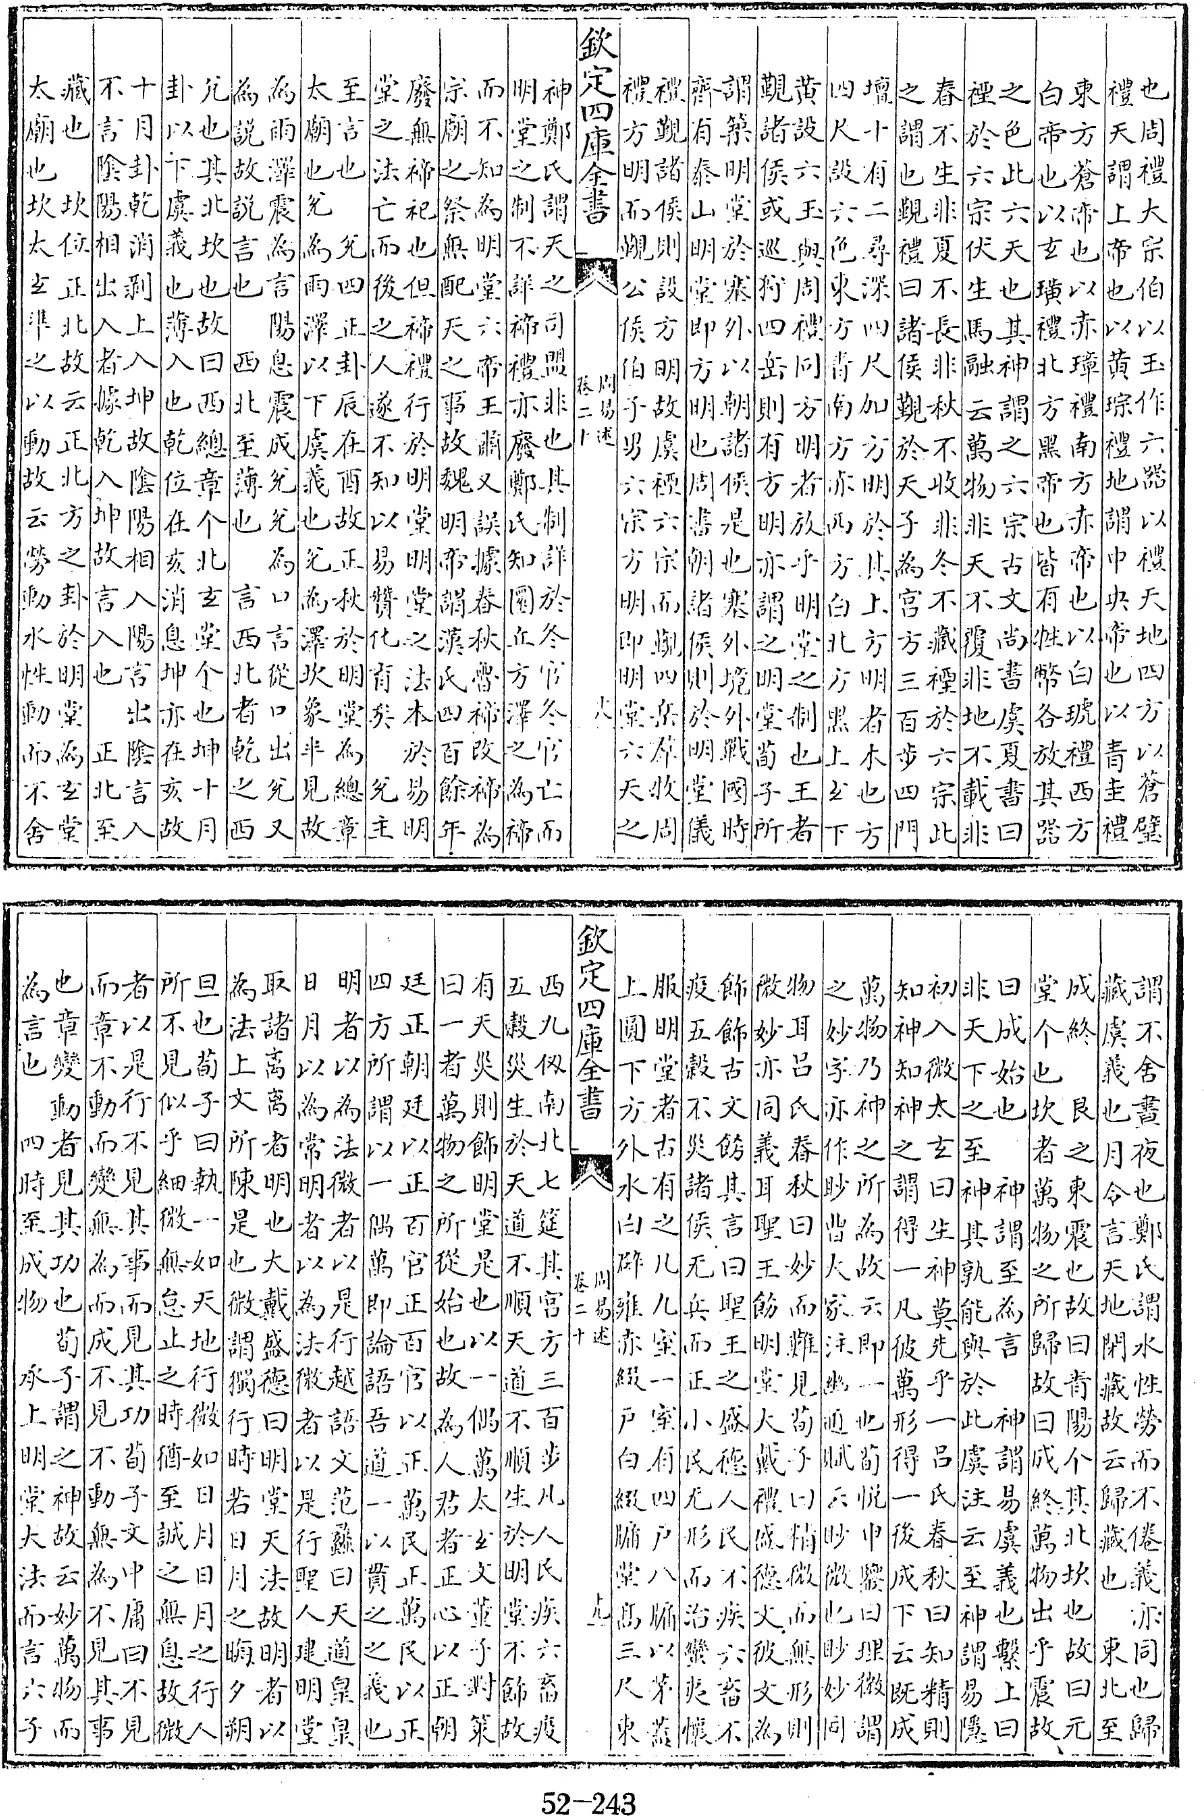 也周禮大宗伯以玉作六器以禮天地四方以蒼璧
禮天謂上帝也以黃琮禮地謂中央帝也以青圭禮
東方蒼帝也以赤璋禮南方赤帝也以白琥禮西方
白帝也以玄璜禮北方黑帝也皆有牲幣各放其器
之色此六天也其神謂之六宗古文尚書虞夏書曰
禋於六宗伏生馬融云萬物非天不覆非地不載非
春不生非夏不長非秋不收非冬不藏禋於六宗此
之謂也覲禮曰諸侯覲於天子為宮方三百步四門
壇十有二尋深四尺加方明於其上方明者木也方
四尺設六色東方青南方赤西方白北方黑上玄下
黃設六玉與周禮同方明者放乎明堂之制也王者
覲諸侯或巡狩四岳則有方明亦謂之明堂荀子所
謂築明堂於塞外以朝諸侯是也塞外境外戰國時
齊有泰山明堂即方明也周書朝諸侯則於明堂儀
禮覲諸侯則設方明故虞禋六宗而覲四岳群牧周
禮方明而覲公侯伯子男六宗方明即明堂六天之
欽定四庫全書
周易述
卷二十
十八
神鄭氏謂天之司盟非也其制詳於冬官冬官亡而
明堂之制不詳禘禮亦廢鄭氏知圜丘方澤之為禘
而不知為明堂六帝王肅又誤據春秋魯禘改禘為
宗廟之祭無配天之事故魏明帝謂漢氏四百餘年
廢無禘祀也但禘禮行於明堂明堂之法本於易明
堂之法亡而後之人遂不知以易贊化育矣　兌主
至言也　兌四正卦辰在酉故正秋於明堂為總章
太廟也兌為雨澤以下虞義也兌為澤坎象半見故
為雨澤震為言陽息震成兌兌為口言從口出兌又
為說故說言也　西北至薄也　言西北者乾之西
兌也其北坎也故曰西總章个北玄堂个也坤十月
卦以下虞義也薄入也乾位在亥消息坤亦在亥故
十月卦乾消剝上入坤故陰陽相入陽言出陰言入
不言陰陽相出入者據乾入坤故言入也　正北至
藏也　坎位正北故云正北方之卦於明堂為玄堂
太廟也坎太玄準之以動故云勞動水性動而不舍
謂不舍晝夜也鄭氏謂水性勞而不倦義亦同也歸
藏虞義也月令言天地閉藏故云歸藏也　東北至
成終　艮之東震也故曰青陽个其北坎也故曰元
堂个也坎者萬物之所歸故曰成終萬物出乎震故
曰成始也　神謂至為言　神謂易虞義也繫上曰
非天下之至神其孰能與於此虞注云至神謂易隱
初入微太玄曰生神莫先乎一呂氏春秋曰知精則
知神知神之謂得一凡彼萬形得一後成下云既成
萬物乃神之所為故云即一也荀悅申鑒曰理微謂
之妙字亦作眇曹大家注幽通賦云眇微也眇妙同
物耳呂氏春秋曰妙而難見荀子曰精微而無形則
微妙亦同義耳聖王飭明堂大戴禮盛德文彼文為
飾飾古文飭其言曰聖王之盛德人民不疾六畜不
疫五穀不災諸侯无兵而正小民无形而治蠻夷懷
服明堂者古有之凡九室一室有四戶八牖以茅蓋
上圓下方外水曰辟雍赤綴戶白綴牖堂高三尺東
欽定四庫全書
周易述
卷二十
十九
西九仭南北七筵其宮方三百步凡人民疾六畜疫
五穀災生於天道不順天道不順生於明堂不飾故
有天災則飾明堂是也以一偶萬太玄文董子對策
曰一者萬物之所從始也故為人君者正心以正朝
廷正朝廷以正百官正百官以正萬民正萬民以正
四方所謂以一偶萬即論語吾道一以貫之之義也
明者以為法微者以是行越語文范蠡曰天道皇皇
日月以為常明者以為法微者以是行聖人建明堂
取諸離離者明也大戴盛德曰明堂天法故明者以
為法上文所陳是也微謂獨行時若日月之晦夕朔
旦也荀子曰執一如天地行微如日月日月之行人
所不見似乎細微無怠止之時猶至誠之無息故微
者以是行不見其事而見其功荀子文中庸曰不見
而章不動而變無為而成不見不動無為不見其事
也章變動者見其功也荀子謂之神故云妙萬物而
為言也　四時至成物　承上明堂大法而言六子
52-243